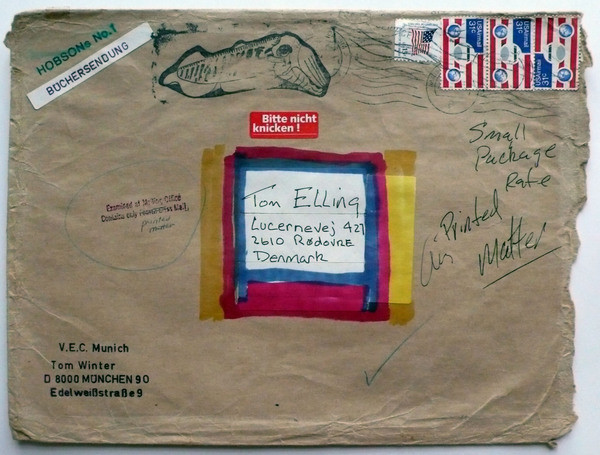 HOBSONs No.1
BÜCHERSENDUNG
Bitte nicht
knicken !
USAirmail
31c
USAirmail
31c
USAirmail
31c
Small
Package
Rate
Air Printed
Matter
Examined at Mailing Office
Contains only
printed
matter
Tom Elling
Lucernevej 427
2610 RØDOVRE
Denmark
V.E.C. Munich
Tom Winter
D 8000 MÜNCHEN 90
Edelweißstraße 9